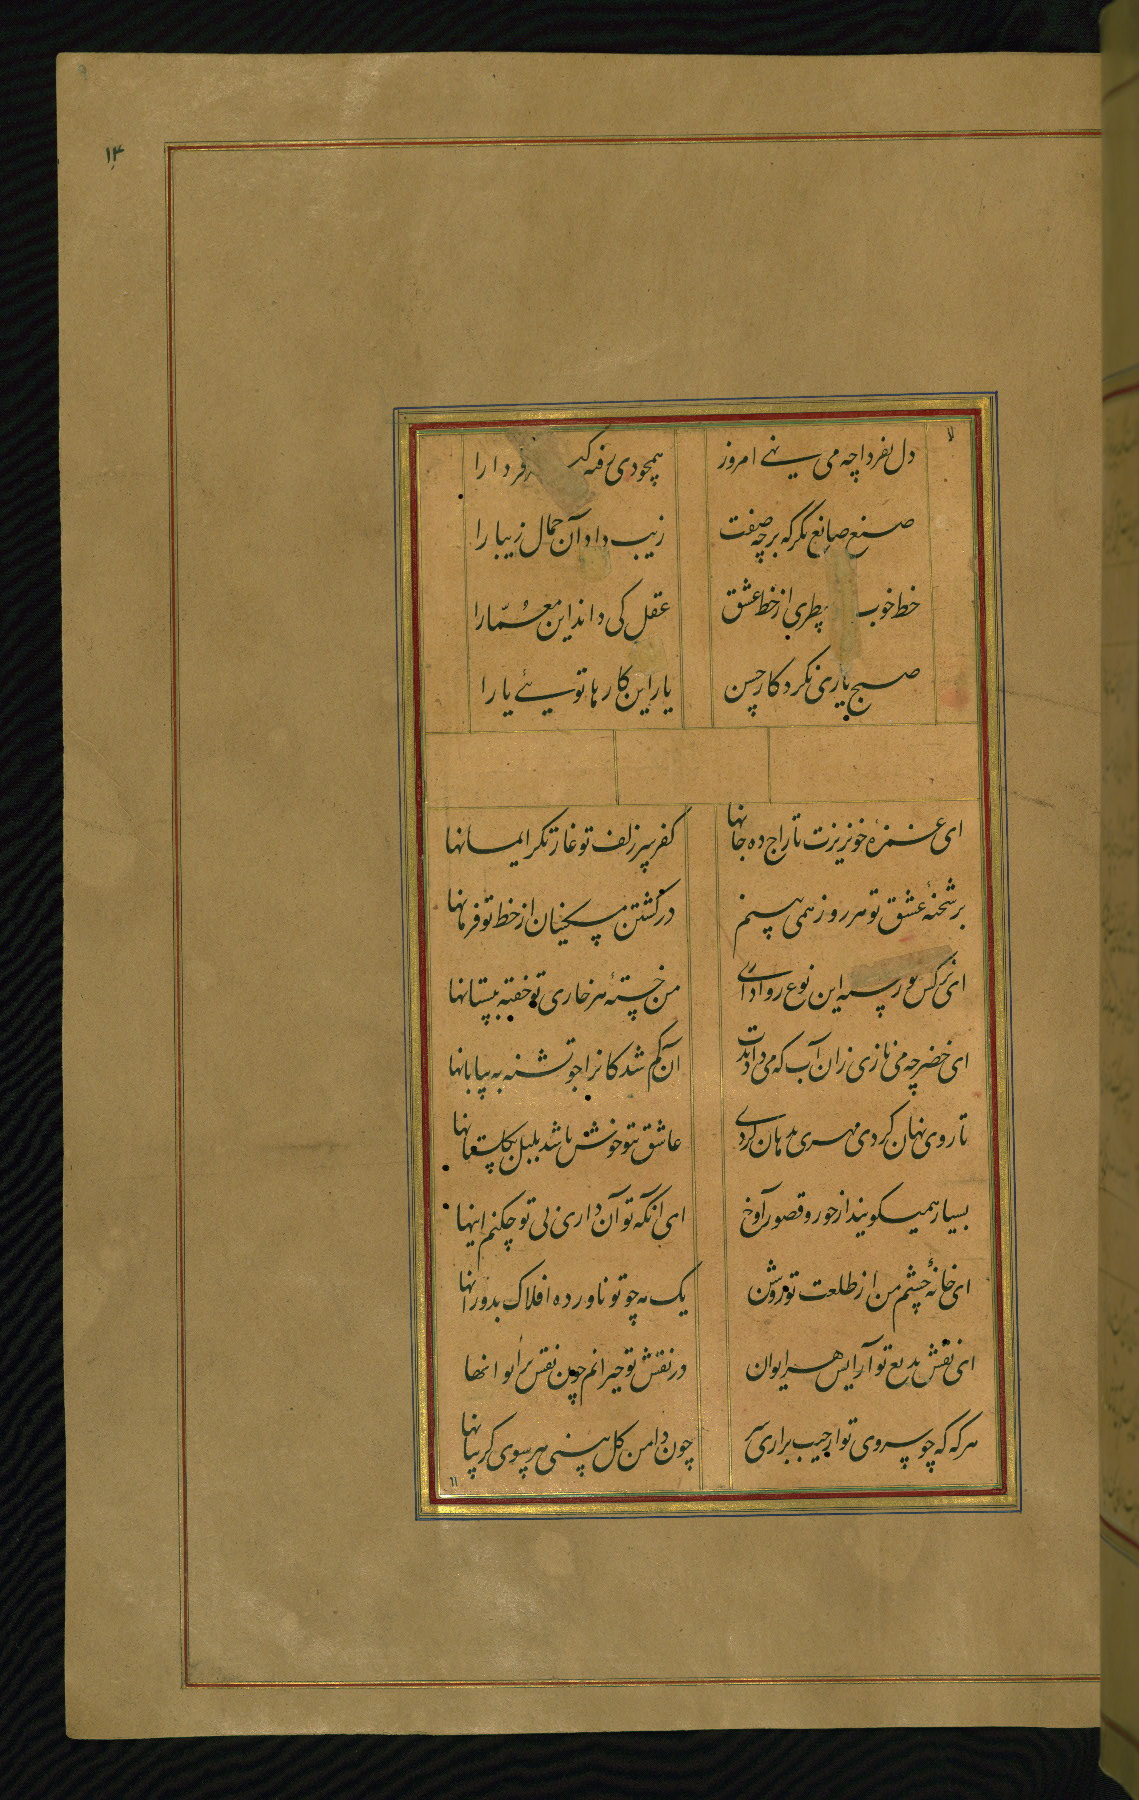 ۱۴
دل بفردا چه می نهی امروز
همچو دی رفته فردا را
صنع صانع نگر که بر چه صفت
زیب داد آن جمال زیبا را
خط خوب سطری از خط عشق
عقل کی داند این معمّا را
صبح یاری نکرد کار حسن
یار این کارها تویی یارا
ای غمزهٔ خونریزت تاراج ده جانها
کفر سر زلف تو غارتگر ایمانها
بر شحنهٔ عشق تو هر روز همی بینم
در کشتن مسکینان از خط تو فرمانها
ای نرگس این نوع روا داری
من خستهٔ هر خاری تو خفته ببستانها
ای خضر چه می نازی زان آب که می دادندت
آن گم شدکانرا جو تشنه به بیابانها
تا روی نهان کردی مهری بدهان کردی
عاشق بتو خوش باشد بلبل بگلستانها
بسیار همیگویند از حور و قصور آوخ
ای آنکه تو آن داری بی تو چکنم اینها
ای خانهٔ چشم من از طلعت تو روشن
یک مه چو تو ناورده افلاک بدورانها
ای نقش بدیع تو آرایش هر ایوان
در نقش تو حیرانم چون نقش بر ایوانها
هر گه که چو سروی تو از جیب براری سر
چون دامن گل بینی هر سوی گریبانها